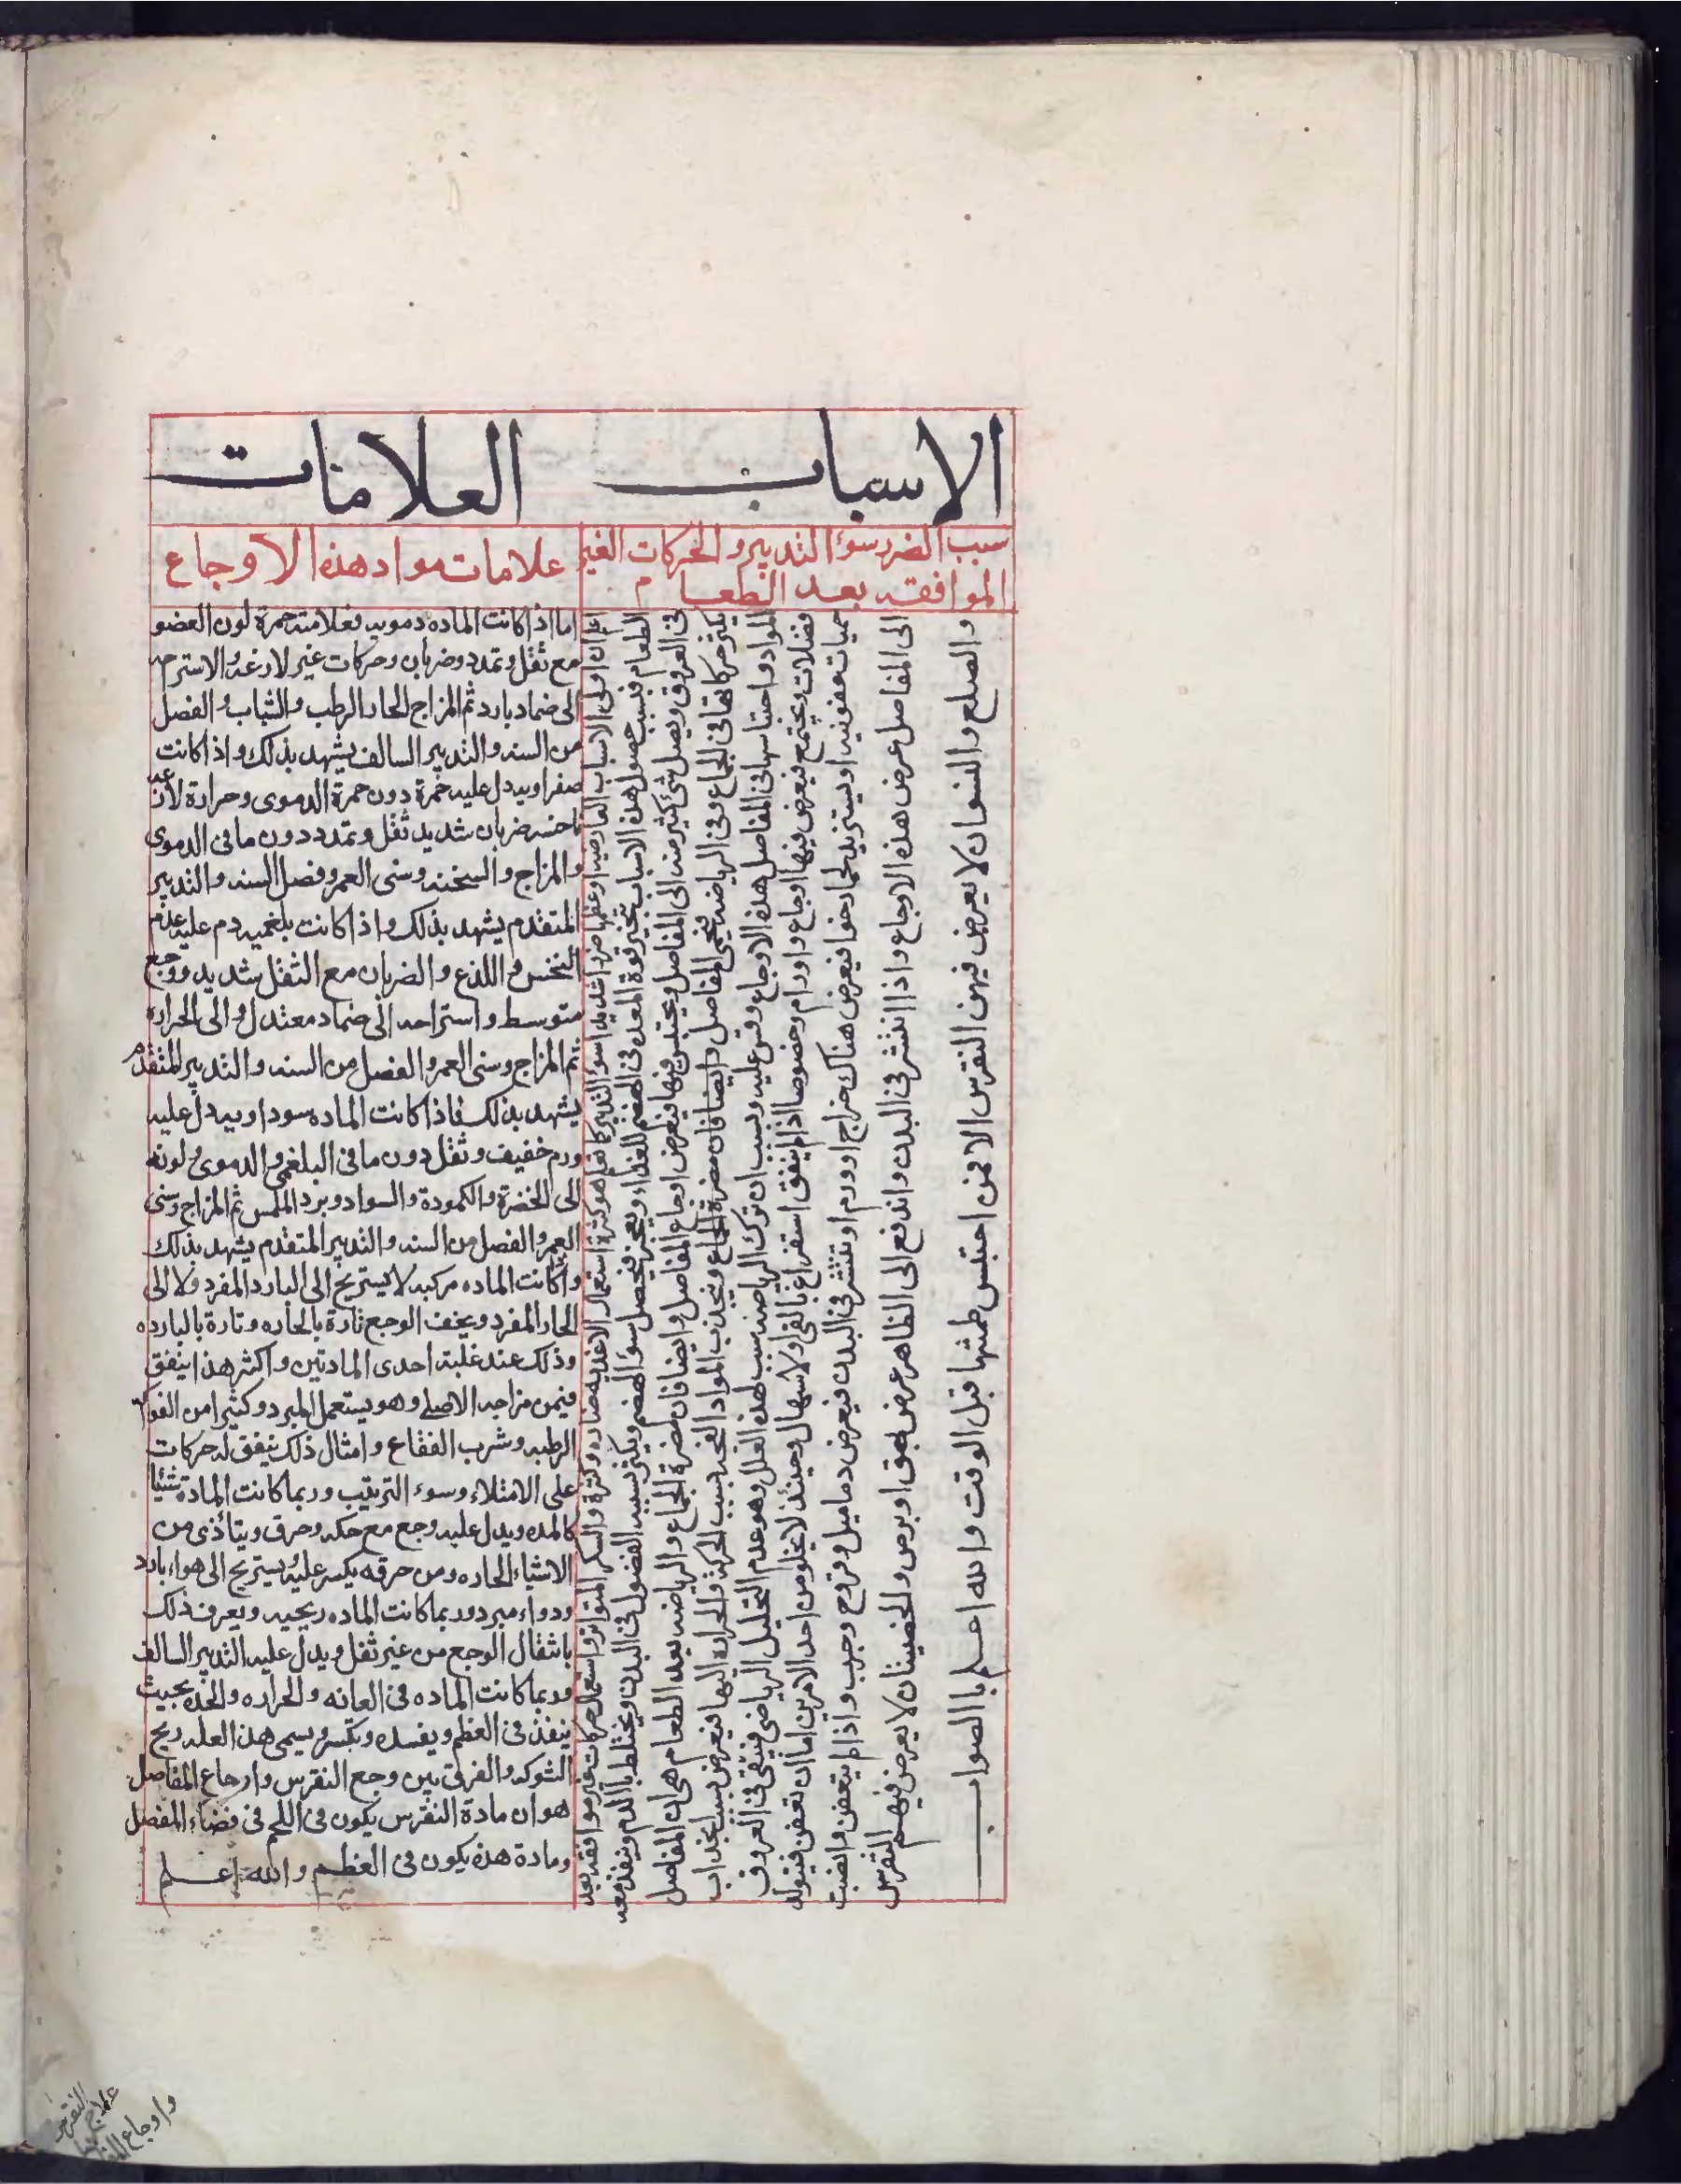 الاسباب العلامات
سبب الضرر سوء التدبير والحركات الغير
الموافقه بعد الطعام
علامات مواد هذه الاوجاع
اعلم ان اولى الاسباب العارضه اوعظمها ضررا شديدا سوء التدبير كالها هو كثرة استعمال الاغذيه ضاره وكثرة والسكر المتواتر واستعمال حركات غير موافقه بعد
الطعام فبسبب حصول هذه الاسباب تتحير قوة المعده فى الهضم للغذاء ويعجز فيحصل سوء الهضم ويكثر بسببه الفضول فى البدن ويختلط بالدم وينفذ معه
فى العروق ويصل شئ كثير منه الى المفاصل ويحتبس فيها فيعرض اوجاع المفاصل وايضا فان مضرة الجماع والرياضه بعد الطعام هى ان المفاصل
يكثر حركاتها فى الجماع وفى الرياضه فتحمى المفاصل وايضا فان مضرة الجماع ويجذب المواد الفجه بسبب الحركة والحرارة اليها فيعرض بسبب انجذاب
المواد واحتباسها فى المفاصل هذه الاوجاع وقس عليه وبسبب ان ترك الرياضه سبب لهذه العلل وهو عدم التحليل الرياضى فيبقى فى العروق
فضلات ويجتمع فيعرض فيها اوجاع واورام وخصوصا اذا لم يتفق استفراغ بالقى ولا سهال وحينئذ لا يخلو من احد الامرين اما ان تعفن فيتولد
حميات عفونيه او يستزيد لحما رخوا فيعرض هناك خراج او ورم او تنتشر فى البدن فيعرض دماميل وقروح وجرب واذا لم يتعفن وانصبت
الى المفاصل عرض هذه الاوجاع واذا انتشر فى البدن واندفع الى الظاهر عرض بهق او برص والخصيان لا يعرض فيهم النقرس
والصلع والنسوان لا يعرض فيهن النقرس الا فمن احتبس طمثها قبل الوقت والله اعلم با الصواب
اما اذا كانت الماده دمويه فعلامته حمرة لون العضو
مع ثقل وتمدد وضربان وحركات غير لارغه والاسترحه
الى ضماد بارد ثم المزاج الحار الرطب والشباب والفصل
من السنه والتدبير السالف يشهد بذلك واذا كانت
صفراويه دل عليه حمرة دون حمرة الدموى وحرارة لأن
ناخسه ضربان شديد ثقل وتمدد دون مافى الدموى
والمزاج والسخنه وسنى العمر وفصل السنه والتدبير
المتقدم يشهد بذلك واذا كانت بلغميه دم عليه عدم
النخس واللذع والضربان مع الثقل شديد ووجع
متوسط واستراحه الى ضماد معتدل والى الحراره
ثم المزاج وسنى العمر والفصل من السنه والتدبير المتقدم
يشهد بذلك فاذا كانت الماده سوداويه دل عليه
ورم خفيف وثقل دون مافى البلغمى والدموى ولونه
الى الخضرة والكمودة والسواد وبرد الملمس ثم المزاج وسنى
العمر والفصل من السنه والتدبير المتقدم يشهد بذلك
واذا كانت الماده مركبه لا يستريح الى البارد المفرد ولا الى
الحار المفرد ويخف الوجع تارة بالحاره وتارة بالبارده
وذلك عند غلبة احدى المادتين واكثر هذا يتفق
فيمن مزاجه الاصلى وهو يستعمل المبرد وكثيرا من الفواكه
الرطبه وشرب الفقاع وامثال ذلك يتفق له حركات
على الامتلاء وسوء الترتيب وربما كانت المادة شيئا
كالمده ويدل عليه وجع مع حكه وحرق ويتأذى من
الاشياء الحاره ومن حرقه يكسر عليه ويستريح الى هواء بارد
ودواء مبرد وربما كانت الماده ريحيه ويعرف ذلك
بانتقال الوجع من غير ثقل ويدل عليه التدبير السالف
وربما كانت الماده فى العانه والحراره والحده بحيث
ينفذ فى العظم ويفسده ويكسر ويسمى هذا العله ريح
الشوكه والفرق بين وجع النقرس واوجاع المفاصل
هو ان مادة النقرس يكون فى اللحم فى فضاء المفصل
ومادة هذه يكون فى العظم والله اعلم
علاج النقرس
واوجاع